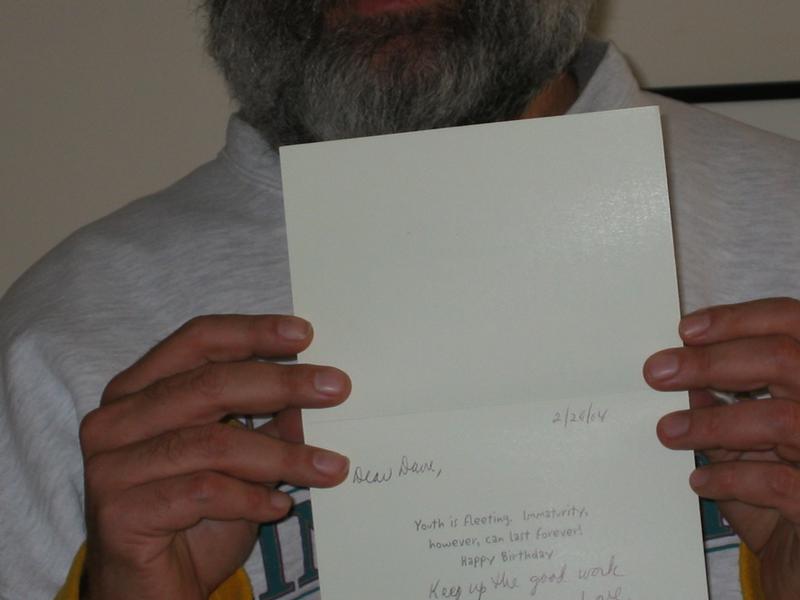 2/20/04
Dear Dave,
Youth is fleeting. Immaturity,
however, can last forever!
Happy Birthday
Keep up the good work